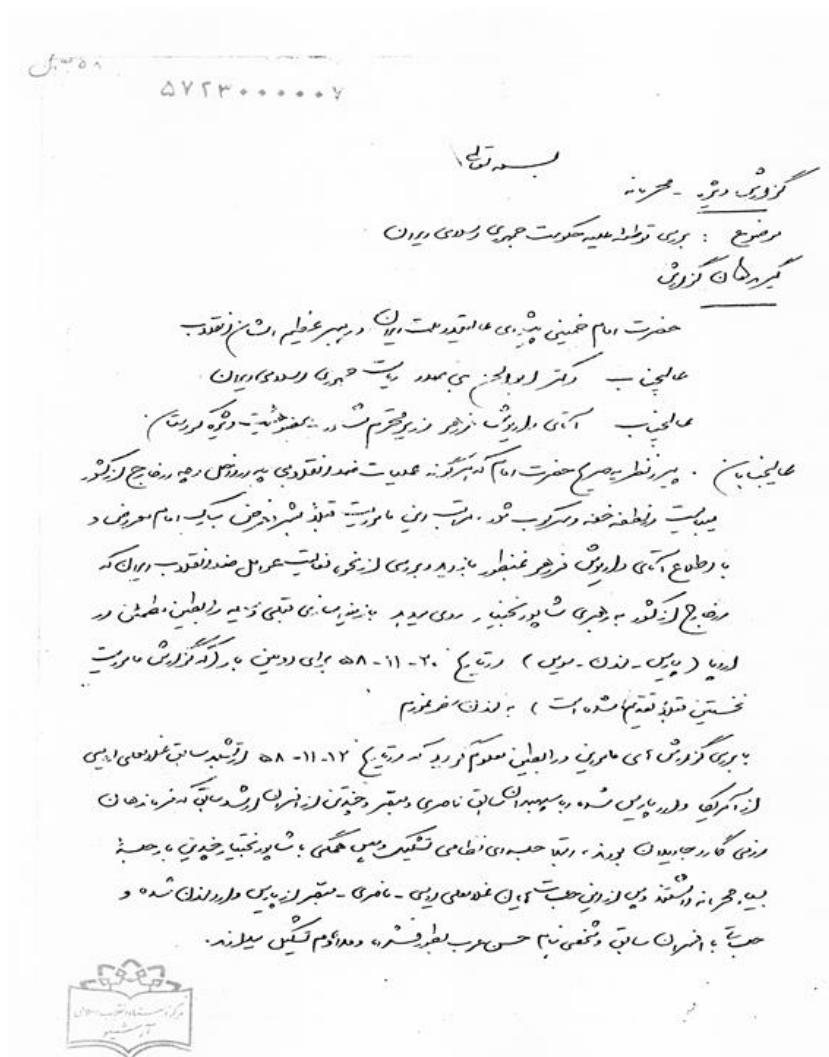 ۵۷۲۳۰۰۰۰۰۷
بسمه تعالی
گزارش ویژه - محرمانه
موضوع : بررسی توطئه علیه حکومت جمهوری اسلامی ایران
گیرندگان گزارش
حضرت امام خمینی پیشوای عالیقدر ملت ایران و رهبر عظیم الشان انقلاب
عالیجناب دکتر ابوالحسن بنی صدر ریاست جمهوری اسلامی ایران
عالیجناب آقای داریوش فروهر وزیر محترم مشاور و عضو هیئت ویژه کردستان
عالیجنابان . پیرو نظریه صریح حضرت امام که هرگونه عملیات ضد انقلابی چه در داخل و چه در خارج از کشور
میبایست در نطفه خفه و سرکوب شود ، مراتب این ماموریت قبلا بشرفعرض مبارک امام معروض و
با اطلاع آقای داریوش فروهر بمنظور بازدید و بررسی از نحوه فعالیت عوامل ضد انقلاب ایران که
در خارج از کشور به رهبری شاپور بختیار روی میدهد با زمینه سازی قبلی و تهیه رابطین مطمئن در
اروپا ( پاریس - لندن - سویس ) در تاریخ ۲۰-۱۱-۵۸ برای دومین بار ( که گزارش ماموریت
نخستین قبلا تقدیم شده است ) به لندن سفر نمودم
با بررسی گزارش های مامورین و رابطین معلوم گردید که در تاریخ ۱۲-۱۱-۵۸ ارتشبد سابق غلامعلی اویسی
از آمریکا وارد پاریس شده و با سپهبدان سابق ناصری و مبصر و چندتن از افسران ارشد سابق که فرماندهان
رزمی گارد جاویدان بودند ، ابتدا جلسه ای نظامی تشکیل و سپس همگی با شاپور بختیار چندین بار جلسه
بسیار محرمانه داشتند و پس از این جلسات آقایان غلامعلی اویسی - ناصری - مبصر از پاریس وارد لندن شده و
جلساتی با افسران سابق و شخصی بنام حسن عرب بطور فشرده و مداوم تشکیل میدادند.
مرکز اسناد انقلاب اسلامی
آرشیو